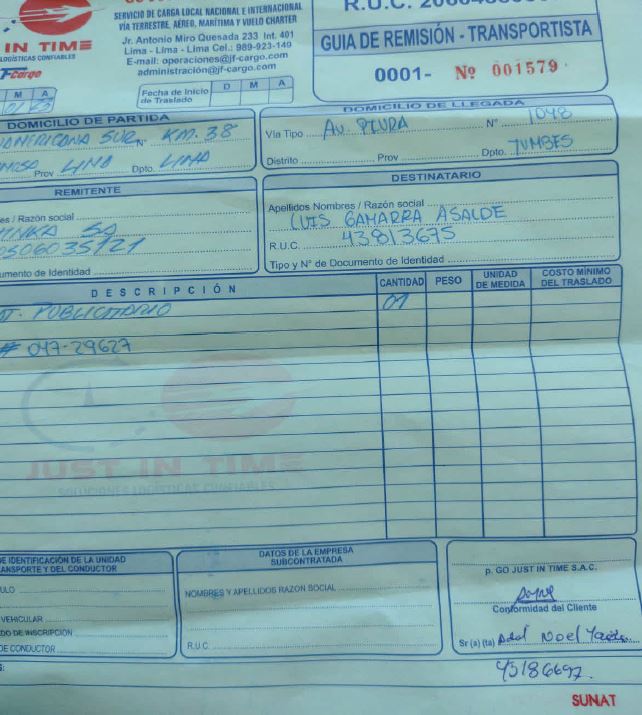 SERVICIO DE CARGA LOCAL NACIONAL E INTERNACIONAL
VÍA TERRESTRE, AÉREO, MARÍTIMA Y VUELO CHARTER
Jr. Antonio Miro Quesada 233 Int. 401
Lima - Lima - Lima Cel.: 989-923-149
E-mail: operaciones@jf-cargo.com
administración@jf-cargo.com
IN TIME
LOGÍSTICAS CONFIABLES
Cargo
M A
Fecha de Inicio de Traslado D M A
R.U.C.
GUIA DE REMISIÓN - TRANSPORTISTA
0001- Nº 001579
DOMICILIO DE PARTIDA
SUR Nº KM. 38
Prov LIMA Dpto. LIMA
DOMICILIO DE LLEGADA
Vía Tipo AV. PIURA Nº 1048
Distrito Prov Dpto. TUMBES
REMITENTE
es / Razón social
SA
umento de Identidad
DESTINATARIO
Apellidos Nombres / Razón social
LUIS GAMARRA ASALDE
R.U.C. 43813675
Tipo y N° de Documento de Identidad
DESCRIPCIÓN CANTIDAD PESO UNIDAD DE MEDIDA COSTO MÍNIMO DEL TRASLADO
AT. PUBLICITARIO 01
# 047-29627
JUST IN TIME
SOLUCIONES LOGÍSTICAS CONFIABLES
DE IDENTIFICACIÓN DE LA UNIDAD
TRANSPORTE Y DEL CONDUCTOR
ULO
VEHICULAR
DO DE INSCRIPCIÓN
DE CONDUCTOR
DATOS DE LA EMPRESA
SUBCONTRATADA
NOMBRES Y APELLIDOS RAZON SOCIAL
R.U.C.
p. GO JUST IN TIME S.A.C.
Conformidad del Cliente
Sr (a) (ta) Noel
45186697.
SUNAT